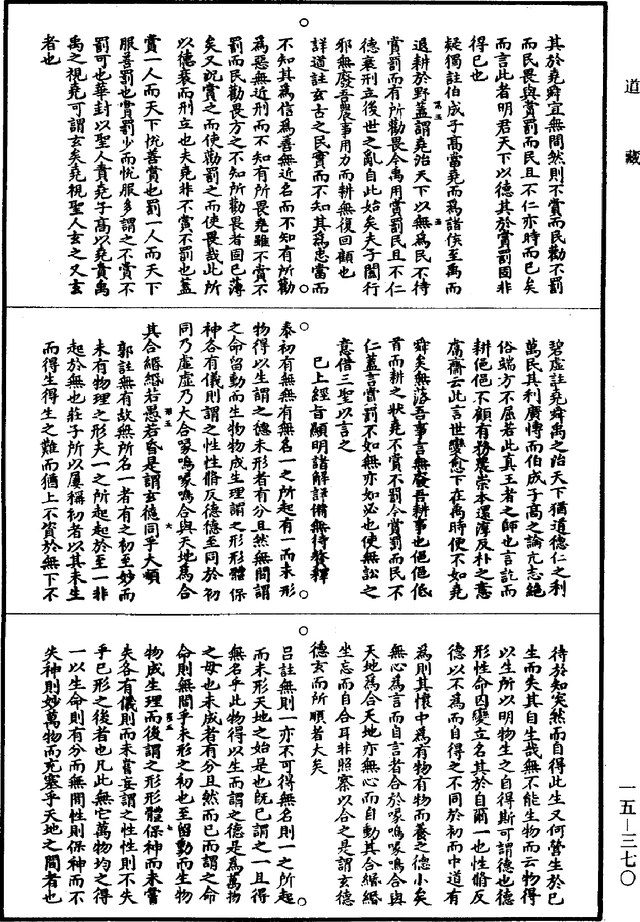 道藏
其於堯舜宜無間然則不賞而民勸不罰
而民畏與賞罰而民且不仁亦時而已矣
而言此者明君天下以德其於賞罰固非
得已也
疑獨註伯成子高當堯而爲諸侯至禹而
退耕於野蓋謂堯治天下以無爲民不待
賞罰而有所勸畏今禹用賞罰民且不仁
德衰刑立後世之亂自此始矣夫子闔行
邪無廢吾農事用力而耕無復回顧也
詳道註玄古之民實而不知其爲忠當而
不知其爲信爲善無近名而不知有所勸
爲惡無近刑而不知有所畏堯雖不賞不
罰而民勸畏方之不知所勸畏者固已薄
矣又況賞之而使勸罰之而使畏哉此所
以德衰而刑立也夫堯非不賞不罰也蓋
賞一人而天下悅善賞也罰一人而天下
服善罰也賞罰少而悅服多謂之不賞不
罰可也華封以聖人責堯子高以堯責禹
禹之視堯可謂玄矣堯視聖人玄之又玄
者也
碧虛註堯舜禹之治天下猶道德仁之利
萬民其利廣博而伯成子高之論亢志絕
俗端方不屈若此真王者之師也言訖而
耕俋俋不顧有務農崇本還淳反朴之意
膚齋云此言世變愈下在禹時便不如堯
舜矣無落吾事言無廢吾耕事也俋俋低
首而耕之狀堯不賞不罰今賞罰而民不
仁蓋言賞罰不如無亦如必也使無訟之
意借三聖以言之
已上經旨顯明諸解詳備無待贅釋
泰初有無無有無名一之所起有一而未形
物得以生謂之德未形者有分且然無間謂
之命留動而生物物成生理謂之形形體保
神各有儀則謂之性性脩反德德至同於初
同乃虛虛乃大合喙鳴喙鳴合與天地爲合
其合緡緡若愚若昏是謂玄德同乎大順
郭註無有故無所名一者有之初至妙而
未有物理之形夫一之所起起於至一非
起於無也莊子所以屢稱初者以其未生
而得生得生之難而猶上不資於無下不
待於知突然而自得此生又何營生於已
生而失其自生哉無不能生物而云物得
以生所以明物生之自得斯可謂德也德
形性命因變立名其於自爾一也性脩反
德以不爲而自得之不同於初而中道有
爲則其懷中爲有物有物而養之德小矣
無心爲言而自言者合於喙鳴喙鳴合與
天地爲合天地亦無心而自動其合緡緡
坐忘而自合耳非照察以合之是謂玄德
德玄而所順者大矣
呂註無則一亦不可得無名則一之所起
而未形天地之始是也既已謂之一且得
無名乎此物得以生而謂之德是爲萬物
之母也未成者有分且然而已而謂之命
命則無間乎未形之初也至留動而生物
物成生理而後謂之形形體保神而未嘗
失各有儀則而未嘗妄謂之性性則不失
乎已形之後者也凡此無它萬物均之得
一以生命則有分而無間性則保神而不
失神則妙萬物而充塞乎天地之間者也
一五—三七〇